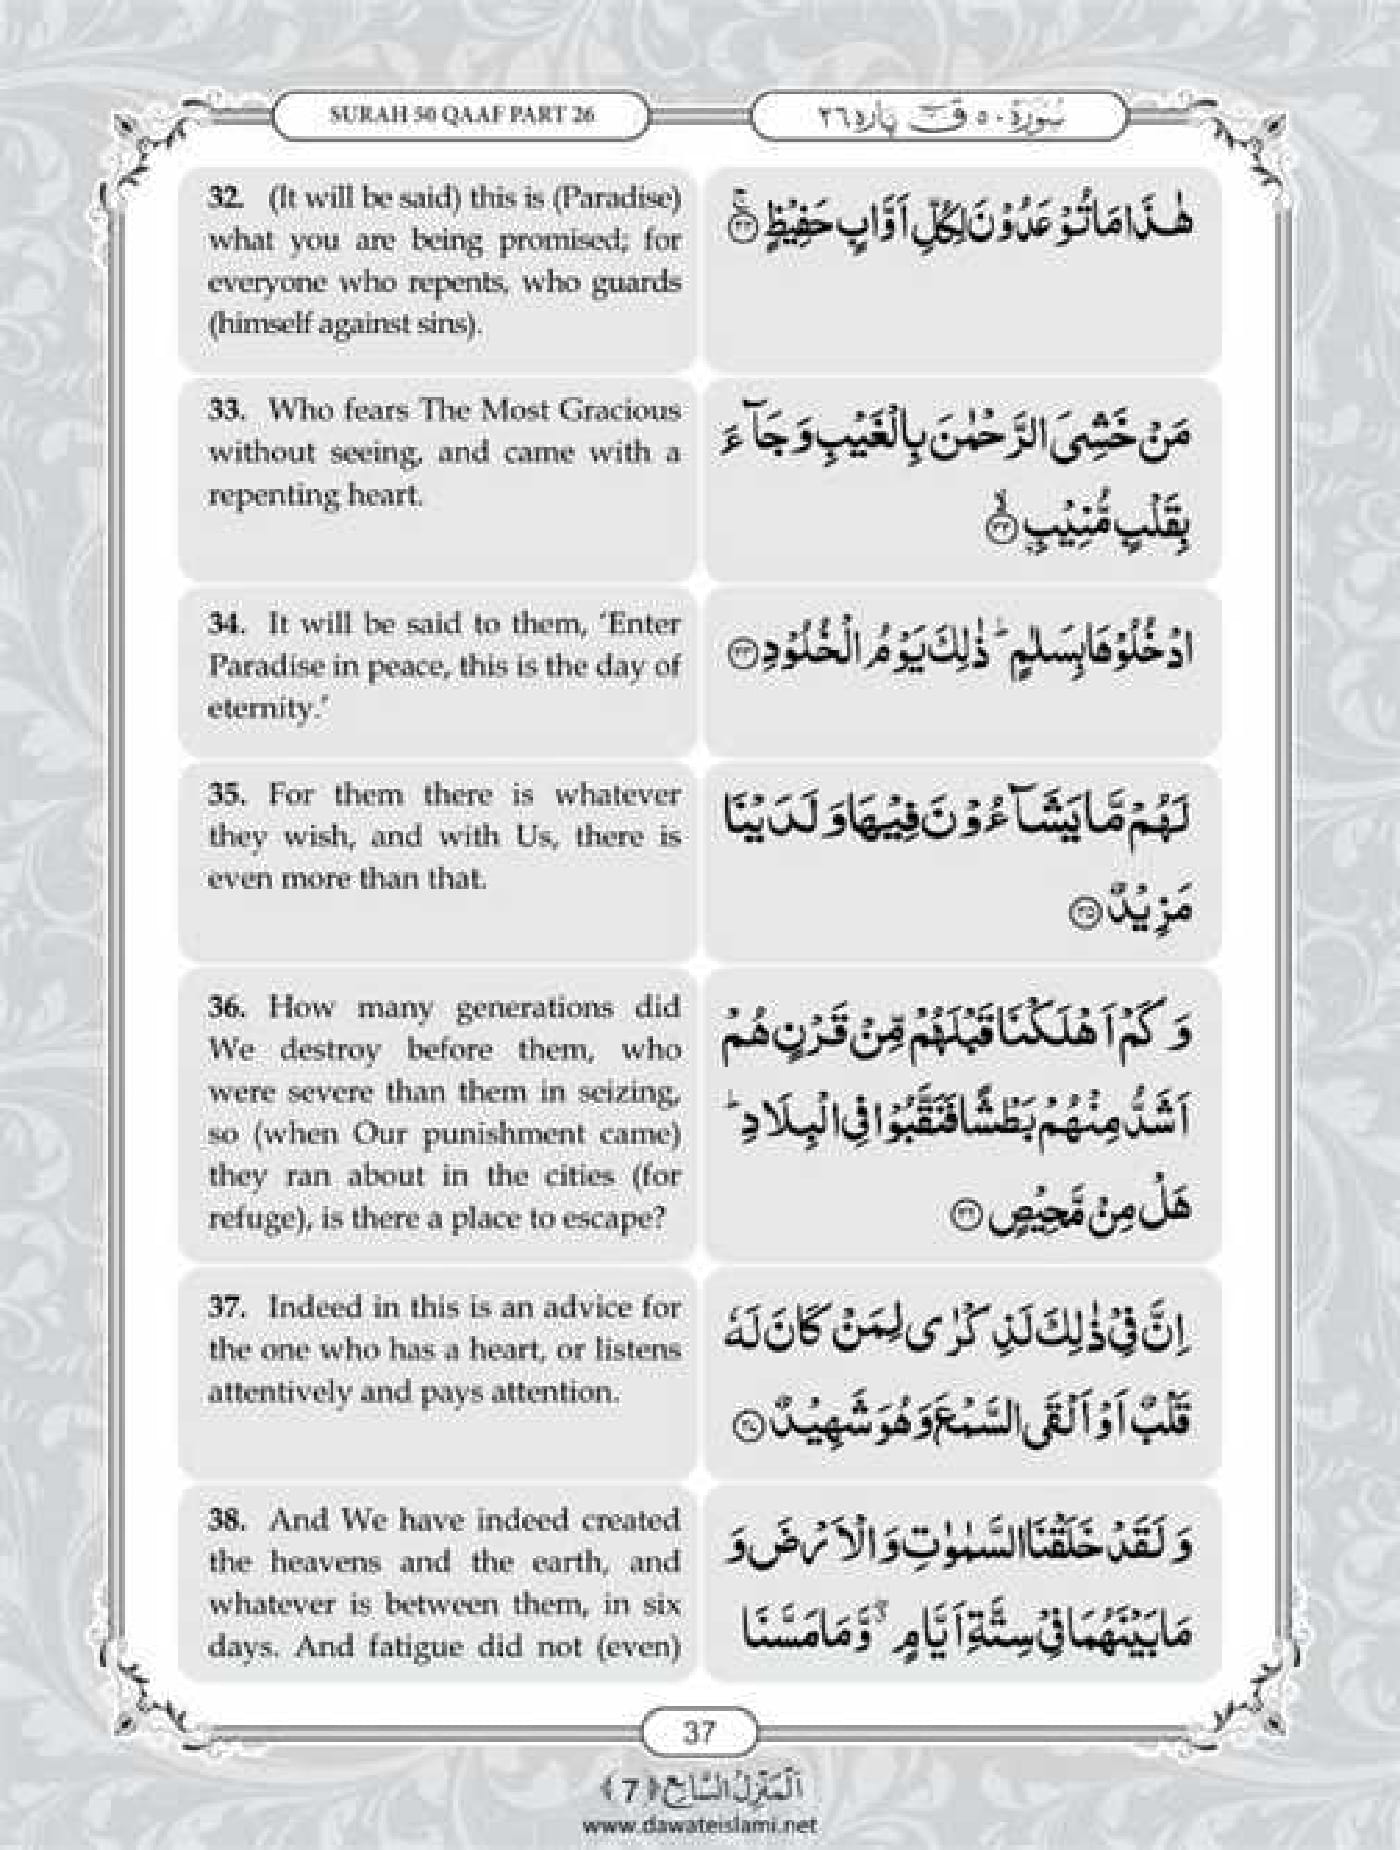 SURAH 50 QAAF PART 26
سُوْرَة ٥٠ قٓ پاره ٢٦
32. (It will be said) this is (Paradise)
what you are being promised; for
everyone who repents, who guards
(himself against sins).
هٰذَا مَا تُوْعَدُوْنَ لِكُلِّ اَوَّابٍ حَفِيْظٍ ۚ﴿۳۲﴾
33. Who fears The Most Gracious
without seeing, and came with a
repenting heart.
مَنْ خَشِیَ الرَّحْمٰنَ بِالْغَیْبِ وَ جَآءَ
بِقَلْبٍ مُّنِیْبِۣ ﴿ۙ۳۳﴾
34. It will be said to them, ‘Enter
Paradise in peace, this is the day of
eternity.’
ادْخُلُوْهَا بِسَلٰمٍ ؕ ذٰلِكَ یَوْمُ الْخُلُوْدِ ﴿۳۴﴾
35. For them there is whatever
they wish, and with Us, there is
even more than that.
لَهُمْ مَّا یَشَآءُوْنَ فِیْهَا وَ لَدَیْنَا
مَزِیْدٌ ﴿۳۵﴾
36. How many generations did
We destroy before them, who
were severe than them in seizing,
so (when Our punishment came)
they ran about in the cities (for
refuge), is there a place to escape?
وَ كَمْ اَهْلَكْنَا قَبْلَهُمْ مِّنْ قَرْنٍ هُمْ
اَشَدُّ مِنْهُمْ بَطْشًا فَنَقَّبُوْا فِی الْبِلَادِ ؕ
هَلْ مِنْ مَّحِیْصٍ ﴿۳۶﴾
37. Indeed in this is an advice for
the one who has a heart, or listens
attentively and pays attention.
اِنَّ فِیْ ذٰلِكَ لَذِكْرٰی لِمَنْ كَانَ لَهٗ
قَلْبٌ اَوْ اَلْقَی السَّمْعَ وَ هُوَ شَهِیْدٌ ﴿۳۷﴾
38. And We have indeed created
the heavens and the earth, and
whatever is between them, in six
days. And fatigue did not (even)
وَ لَقَدْ خَلَقْنَا السَّمٰوٰتِ وَ الْاَرْضَ وَ
مَا بَیْنَهُمَا فِیْ سِتَّةِ اَیَّامٍ ۖۗ وَّ مَا مَسَّنَا
37
اَلْمَنْزِلُ السَّابِع ﴿7﴾
www.dawateislami.net